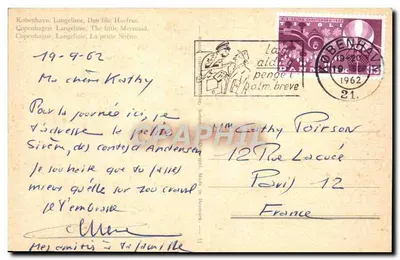 København. Langelinie. Den lille Havfrue.
Copenhagen. Langelinie. The little Mermaid.
Copenhague. Langelinie. La petite Sirène.
19-9-62
Ma chère Kathy
Pour la journée ici, je
t'adresse la petite
Sirène, des contes d'Andersen
je souhaite que tu passes
mieux qu'elle sur ton
je t'embrasse
Mes amitiés à ta famille
Læg
aldrig
penge i
alm. breve
KØBENHAVN
19.9.
1962
21.
Cathy Poirson
12 Rue Lacuée
Paris 12
France